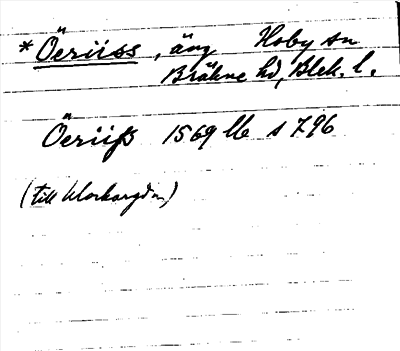 *Öeriiss, äng Hoby sn
Bräkne hd, Blek. l.
Öeriifs 1569 llb s 796
(till klockargdn)